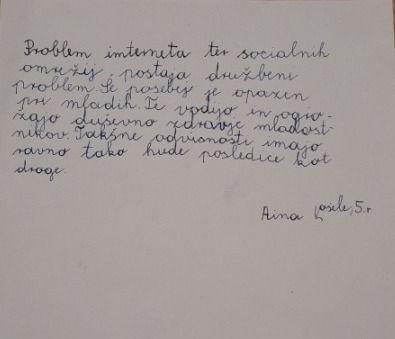 Problem interneta ter socialnih
omrežij postaja družbeni
problem. Še posebej je opazen
pri mladih. Ti vodijo in ogro-
žajo duševno zdravje mladost-
nikov. Takšne odvisnosti imajo
ravno tako hude posledice kot
droge.
Aina Kosele, 5.r